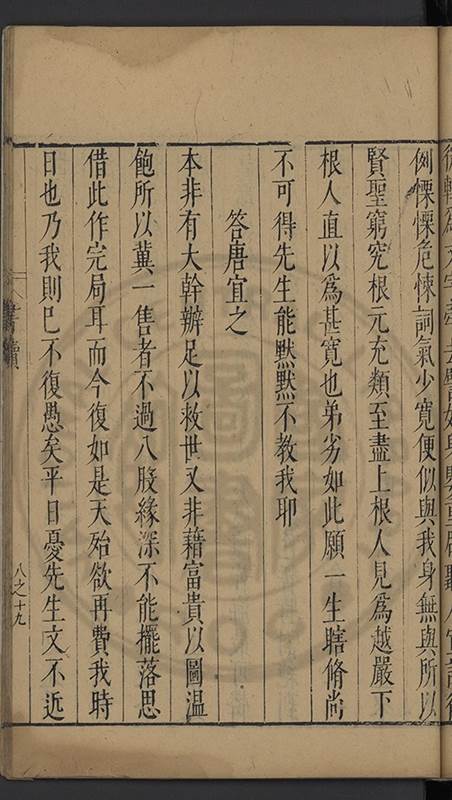 例慄慄危悚詞氣少寬便似與我身無與所以
賢聖窮究根元充類至盡上根人見爲越嚴下
根人直以爲甚寬也弟劣如此願一生瞎脩尚
不可得先生能默默不教我耶
答唐宜之
本非有大幹辦足以救世又非藉富貴以圖溫
飽所以冀一售者不過八股緣深不能擺落思
借此作完局耳而今復如是天殆欲再費我時
日也乃我則已不復愚矣平日憂先生文不近
書牘
八之十九